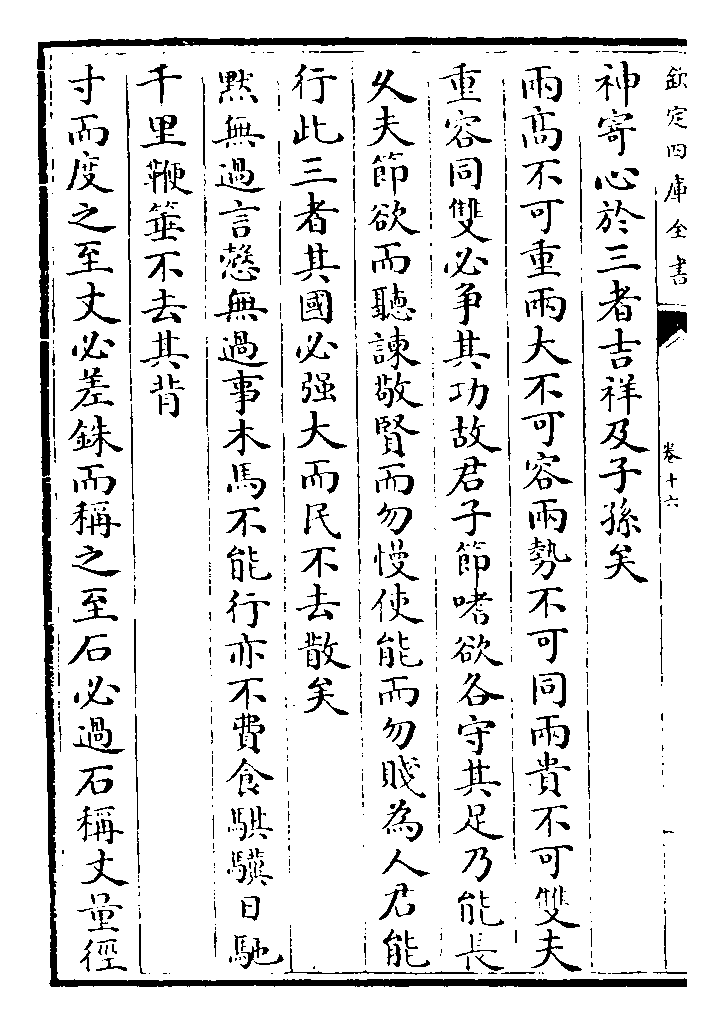 欽定四庫全書
卷十六
神寄心於三者吉祥及子孫矣
兩高不可重兩大不可容兩勢不可同兩貴不可雙夫
重容同雙必争其功故君子節嗜欲各守其足乃能長
久夫節欲而聽諫敬賢而勿慢使能而勿賤為人君能
行此三者其國必强大而民不去散矣
黙無過言慤無過事木馬不能行亦不費食騏驥日馳
千里鞭箠不去其背
寸而度之至丈必差銖而稱之至石必過石稱丈量徑